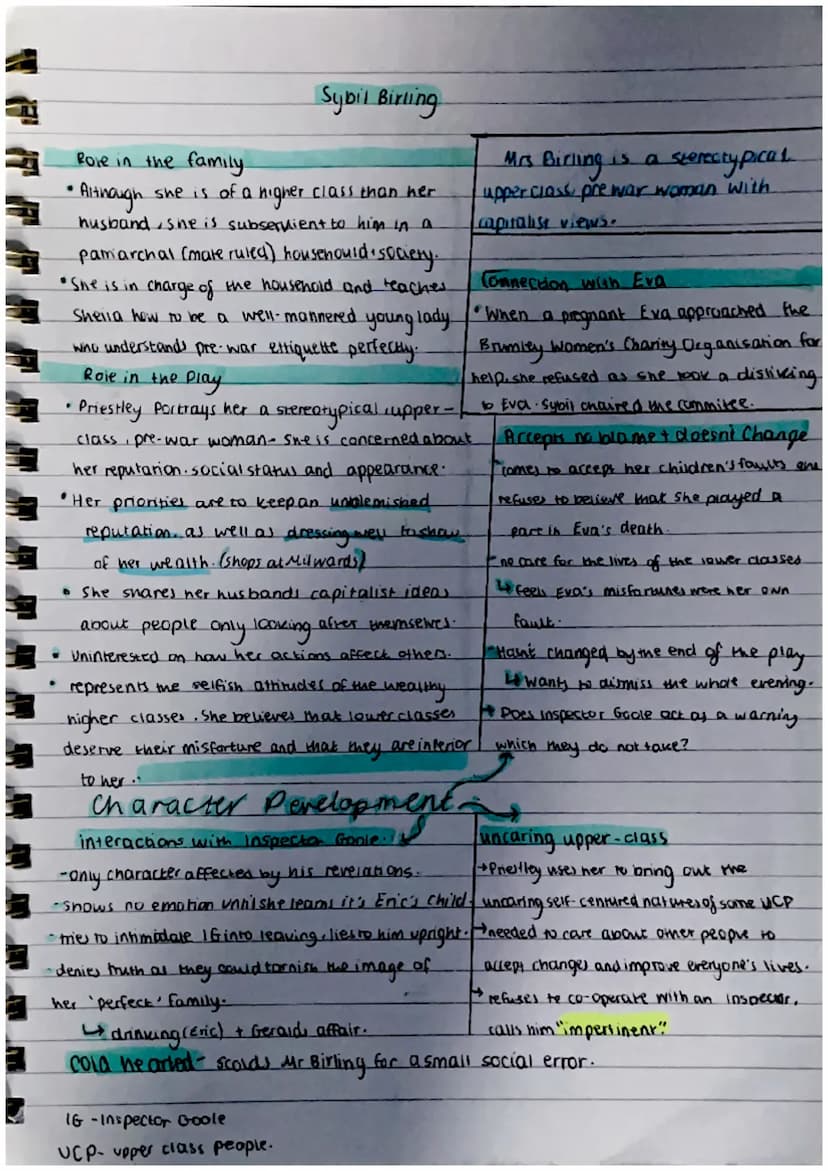 Sybil Birling
Role in the family
• Although she is of a higher class than her
husband, she is subservient to him in a
patriarchal (male ruled) househould + society.
• She is in charge of the household and teaches
Sheila how to be a well-mannered young lady
who understands pre-war ettiquette perfectly.
Role in the Play
• Priestley Portrays her a stereotypical, upper-
class, pre-war woman - she is concerned about
her reputation, social status and appearance.
• Her priorities are to keep an unblemished
reputation, as well as dressing well to show
of her wealth. (shops at Milwards)
• She shares her husbands capitalist ideas
about people only looking after themselves.
• Uninterested on how her actions affect others.
• represents the selfish attitudes of the wealthy
higher classes. She believes that lower classes
deserve their misforture and that they are inferior
to her.
Mrs Birling is a stereotypical
upper class, pre war woman with
capitalist views.
Connection with Eva
• When a pregnant Eva approached the
Brumley Women's Charity Organisation for
help, she refused as she took a disliking
to Eva. Sybil chaired the commitee.
Accepts no blame + doesn't Change
comes to accept her children's faults and
refuses to believe that she played a
part in Eva's death.
- no care for the lives of the lower classes
↳ feels Eva's misfortunes were her own
fault.
Hasn't changed by the end of the play
↳ wants to dismiss the whole evening.
→ Does Inspector Goole act as a warning
which they do not take?
Character Development
interactions with Inspector Goole.
- only character affected by his revelations.
- shows no emotion until she learns it's Eric's child.
- tries to intimidate IG into leaving, lies to him upright.
- denies truth as they could tarnish the image of
her 'perfect' family.
↳ drinking (Eric) + Geralds affair.
cold hearted - scolds Mr Birling for a small social error.
uncaring upper-class
→ Priestley uses her to bring out the
uncaring self-centured natures of some UCP
→ needed to care about other people to
accept changes and improve everyone's lives.
→ refuses to co-operate with an inspector,
calls him "impertinent".
IG - Inspector Goole
UCP - upper class people.